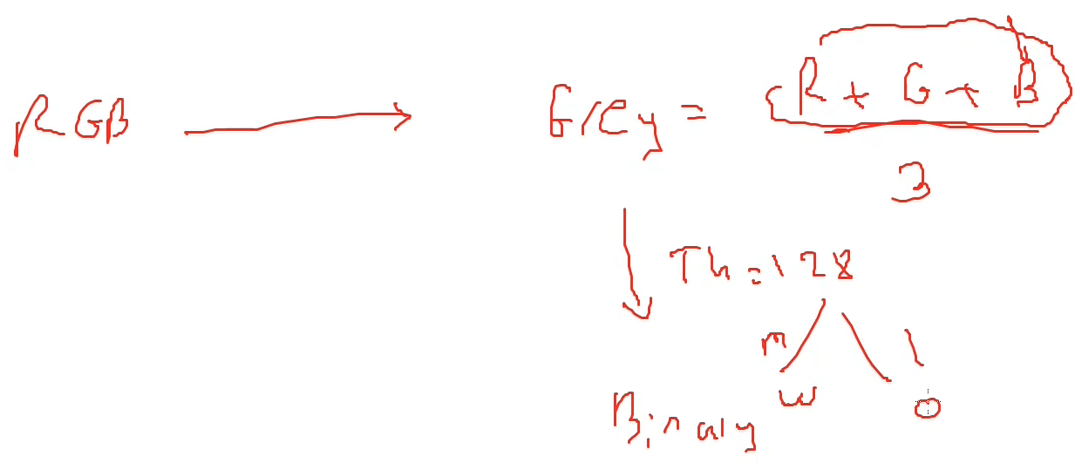 RGB → Grey = R + G + B
3
Th = 128
m l
w 0
Binary